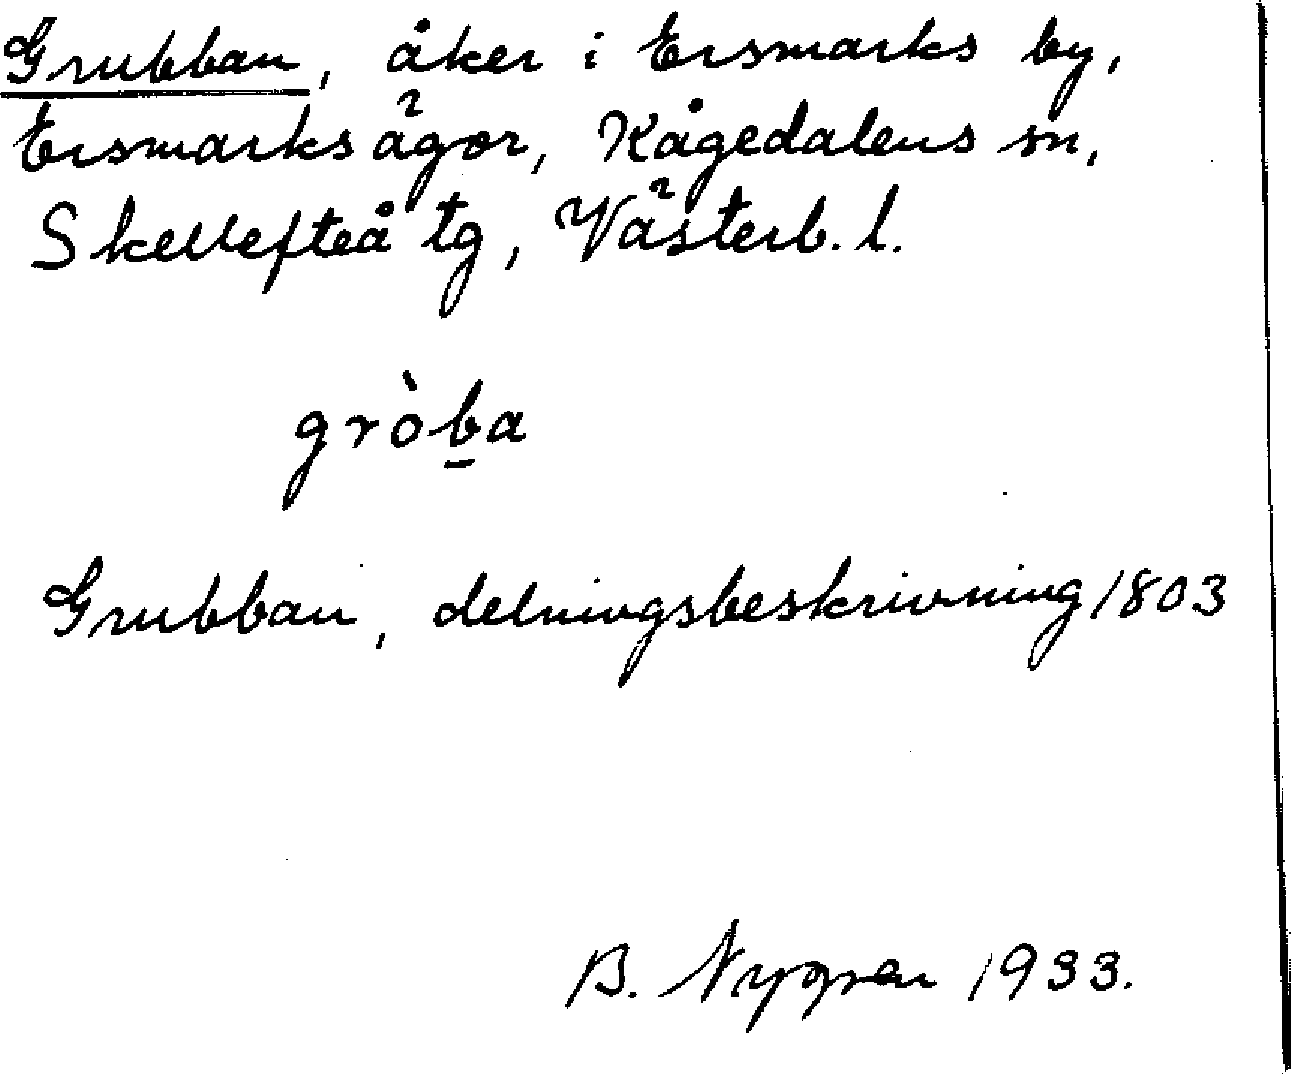 Grubban, åker i Ersmarks by,
Ersmarks ägor, Kågedalens sn,
Skellefteå tg, Västerb. l.
gròb̲a
Grubban, delningsbeskrivning 1803
B. Nygren 1933.